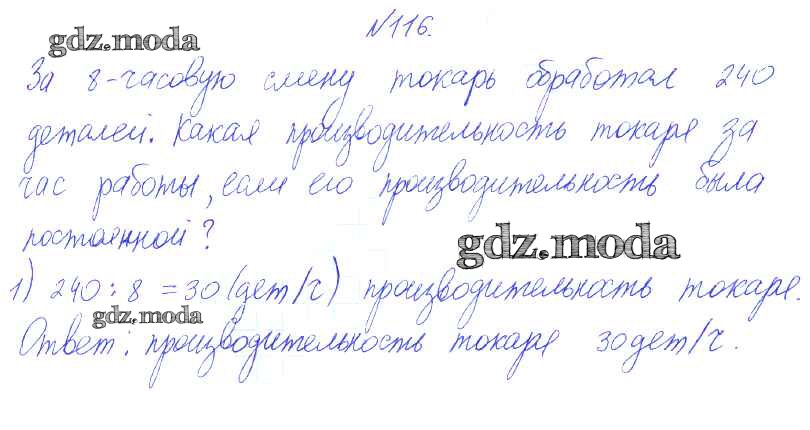 №116.
gdz.moda
За 8-часовую смену токарь обработал 240
деталей. Какая производительность токаря за
час работы, если его производительность была
постоянной?
gdz.moda
1) 240 : 8 = 30 (дет/ч) производительность токаря.
gdz.moda
Ответ: производительность токаря 30 дет/ч.